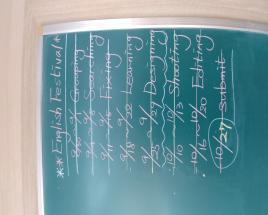 ** English Festival *
Grouping
Searching
9/11 ~ 9/15 Fixing
9/18 ~ 9/22 Learning
9/25 ~ 9/29 Designing
10/10 ~ 10/13 Shooting
10/16 ~ 10/20 Editing
(10/27) Submit